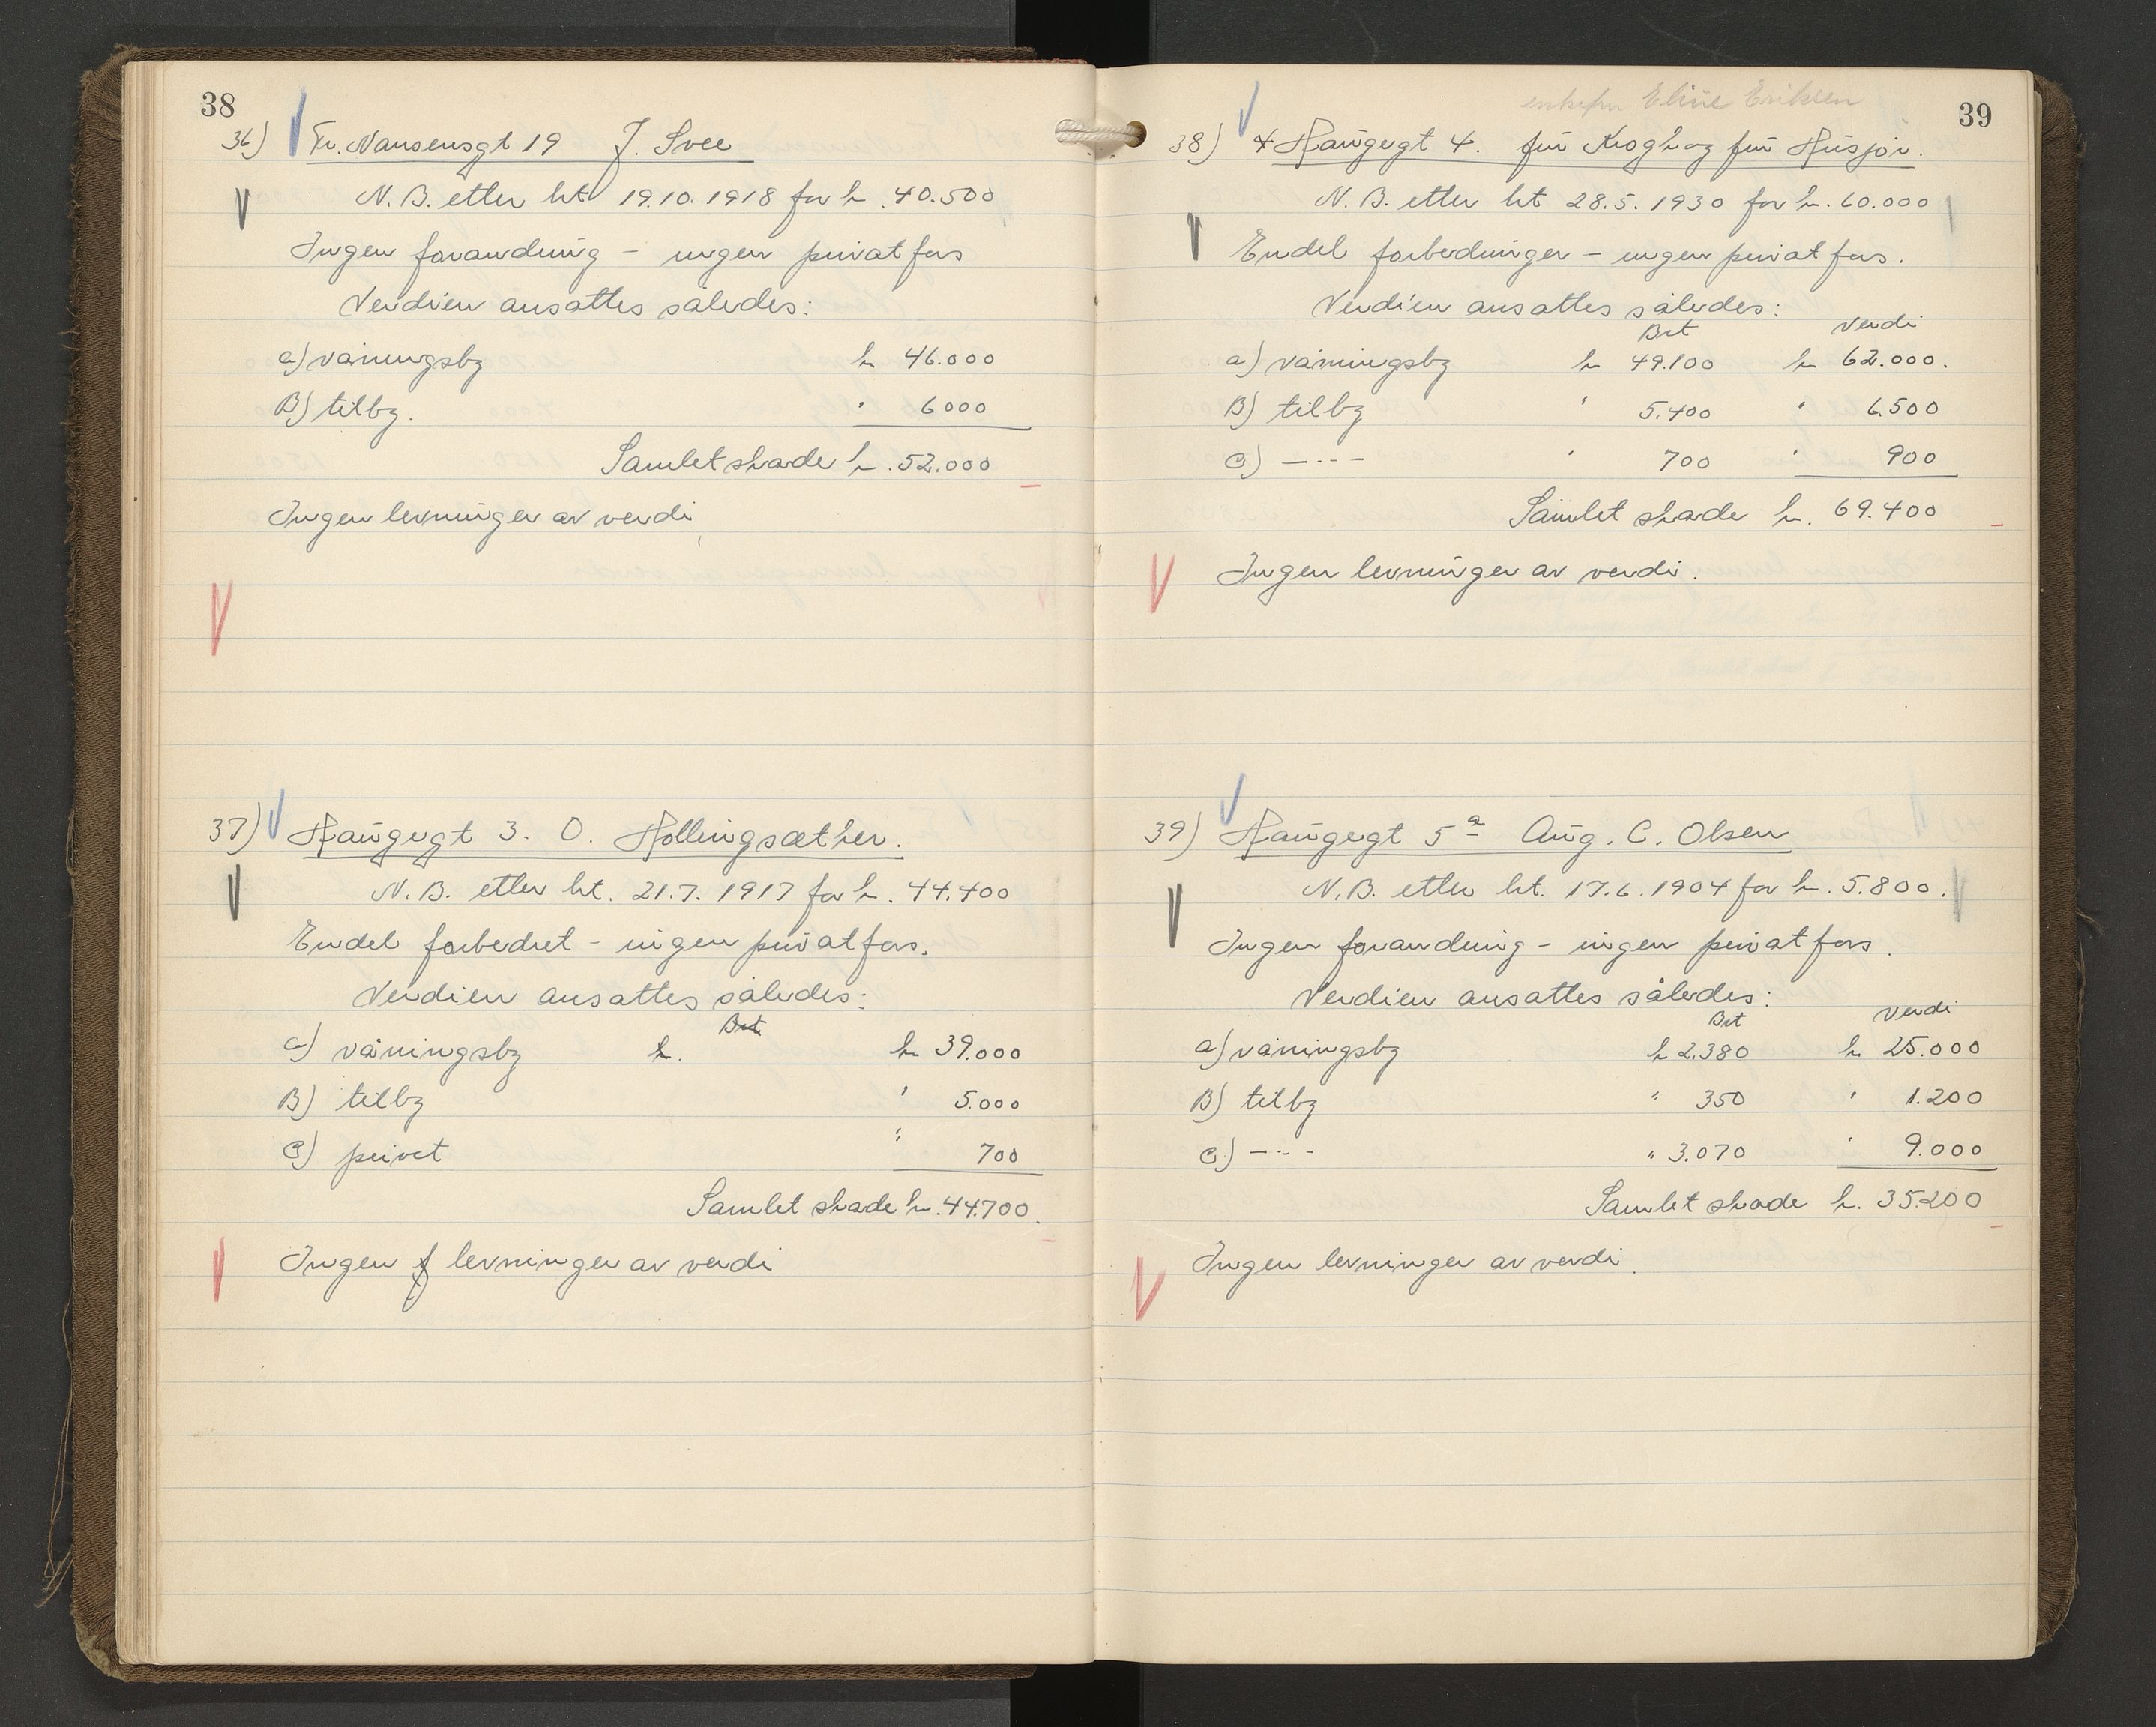 38
36) Fr. Nansensgt 19 J. Svee
N.B. etter brt 19.10.1918 for kr. 40.500
Ingen forandring - ingen privat fors
Verdien ansattes således:
a) våningsby kr 46.000
B) tilby. " 6000
Samlet skade kr. 52.000
Ingen levninger av verdi
37) Haugegt 3. O. Hollingsæther.
N.B. etter brt. 21.7.1917 for kr. 44.400
Endel forbedret - ingen privat fors.
Verdien ansattes således:
Brt
a) våningsby k. kr 39.000
B) tilby " 5.000
C) privet " 700
Samlet skade kr. 44.700.
Ingen levninger av verdi
39
enkefru Eline Eriksen
38) Haugegt 4. frü Krogh og frü Hüsjor.
N.B. etter brt 28.5.1930 for kr. 60.000
Endel forbedringer - ingen privat fors.
Verdien ansattes således:
Brt Verdi
a) våningsby kr 49.100 kr 62.000.
B) tilby " 5.400 " 6.500
C) -"- " 700 " 900
Samlet skade kr. 69.400
Ingen levninger av verdi.
39) Haugegt 5a Aug. C. Olsen
N.B. etter brt. 17.6.1904 for kr. 5.800.
Ingen forandring - ingen privat fors.
Verdien ansattes således:
Brt Verdi
a) våningsby kr 2.380 kr 25.000
B) tilby " 350 " 1.200
C) -"- " 3.070 " 9.000
Samlet skade kr. 35.200
Ingen levninger av verdi.